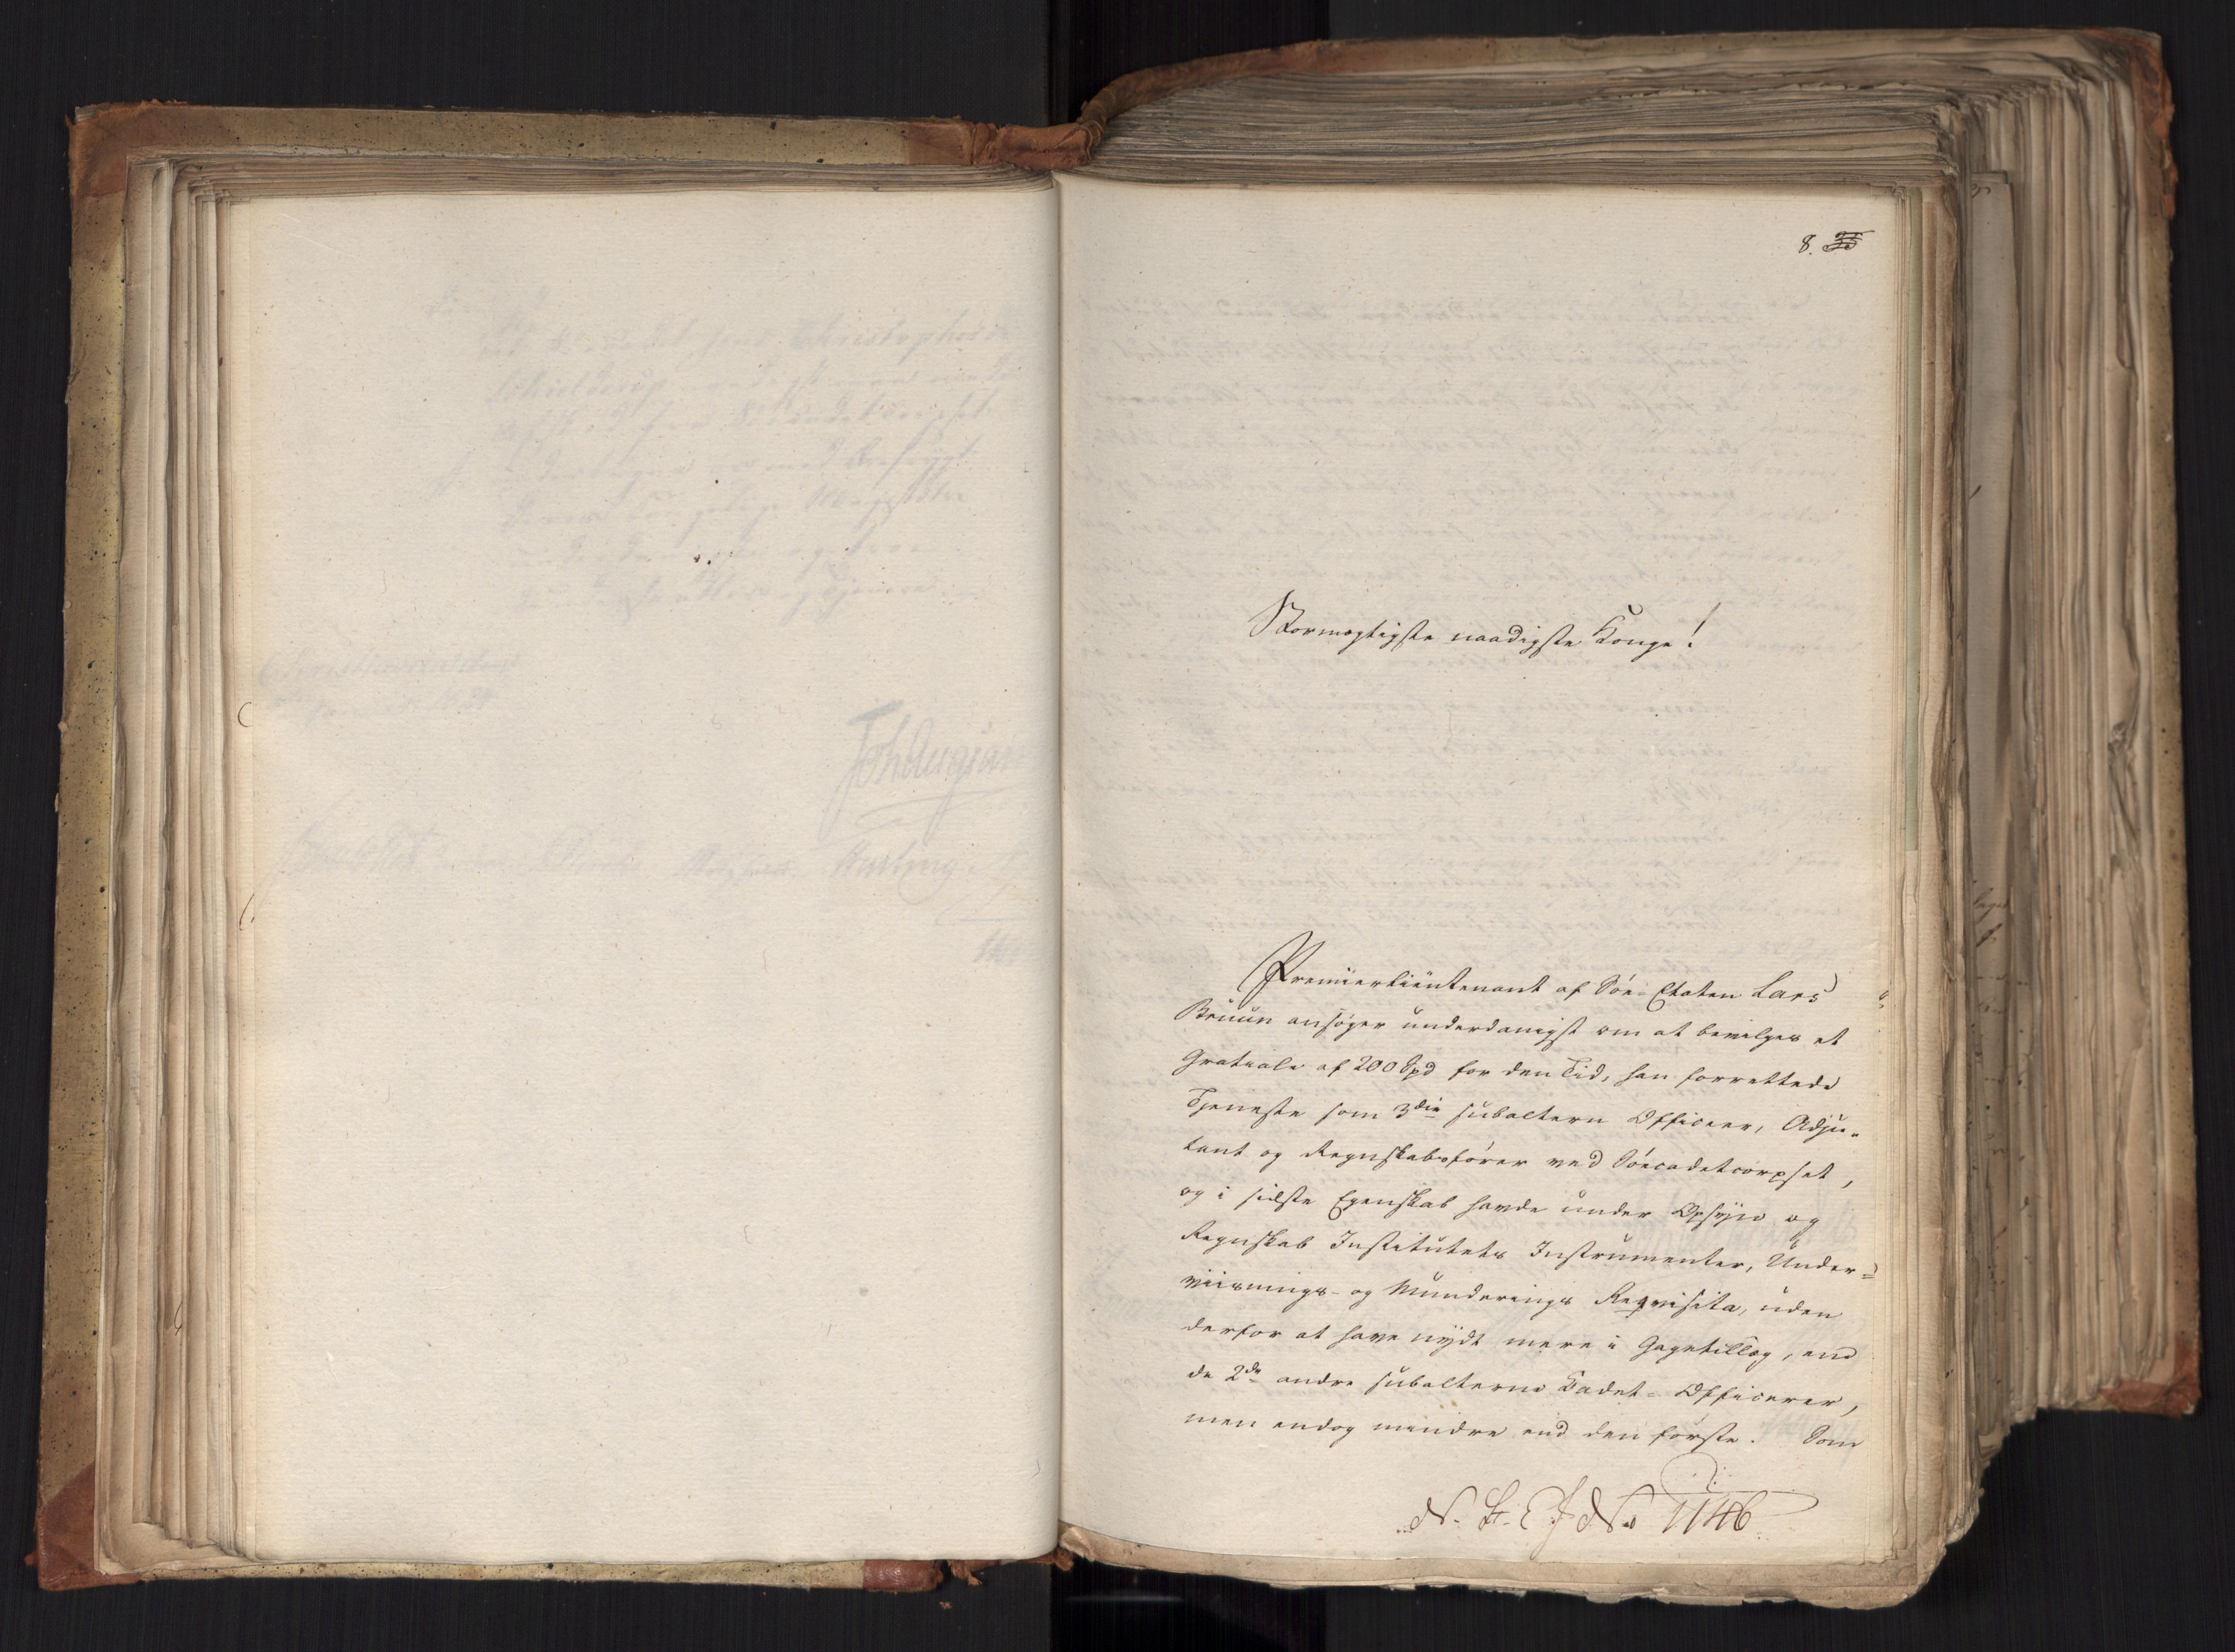 8.
Stormægtigste naadigste Konge!
Premierlieutenant af Søe-Etaten Lars
Bruun ansøger underdanigst om at bevilges et
Gratiale af 200 Spd for den Tid, han forrettede
Tjeneste som 3die subaltern Officeer, Adju-
tant og Regnskabsfører ved Søecadetcorpset,
og i sidste Egenskab havde under Opsyn og
Regnskab Institutets Instrumenter, Under-
viisnings- og Munderings Reqvisita, uden
derfor at have nydt mere i Gagetillæg, end
de 2de andre subalterne Cadet-Officerer,
men endog mindre end den første. Som
N. St. E. J. No 1146